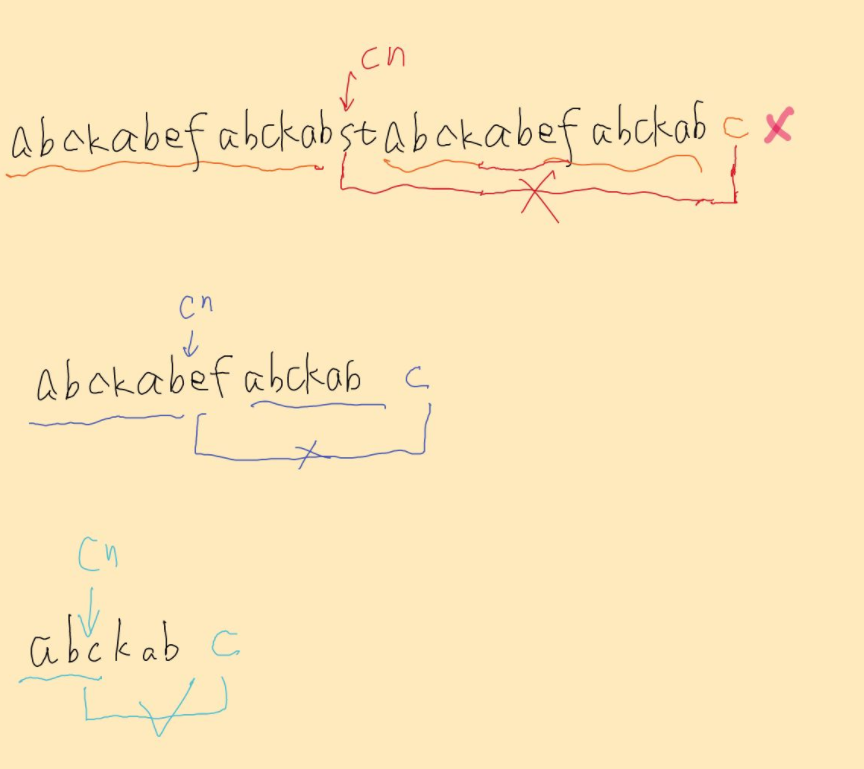 cn
abckabef abckabstabckabef abckab c x
cn
abckabef abckab c
cn
abckab c